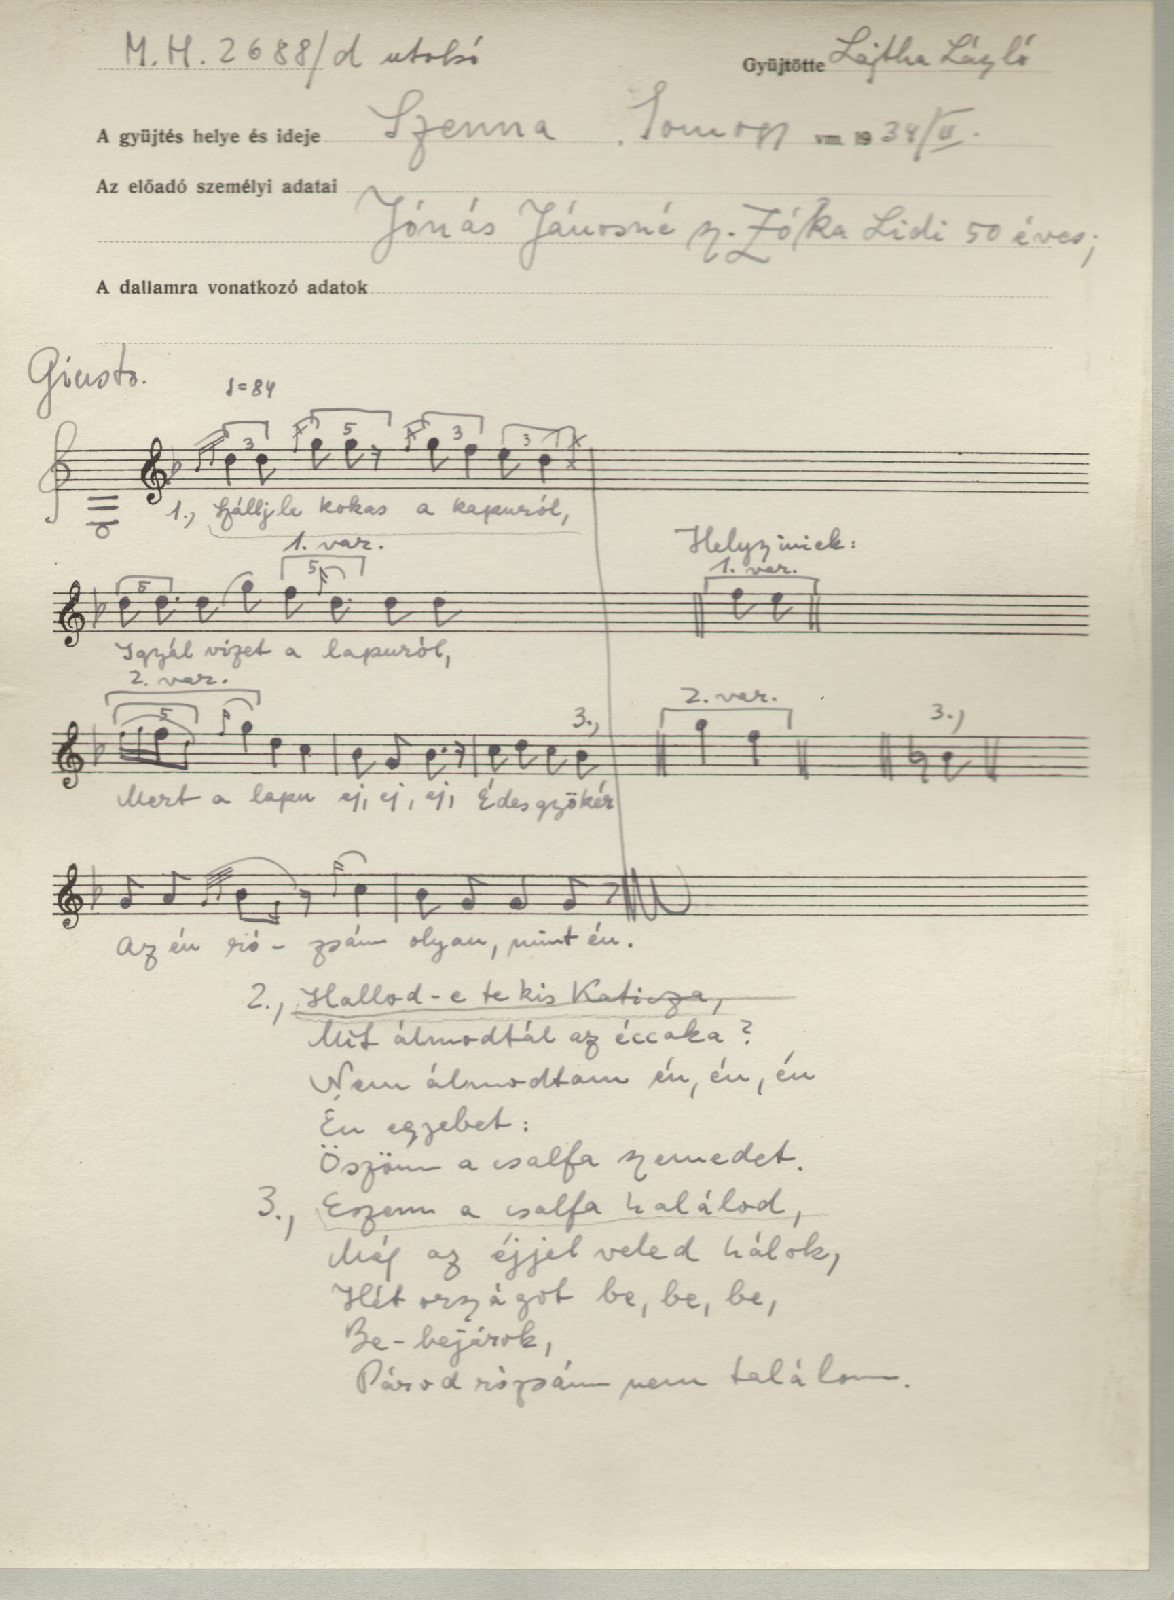 M.H. 2688/d utolsó
Gyűjtötte Lajtha László
A gyűjtés helye és ideje Szenna . Somogy vm. 1934/II.
Az előadó személyi adatai
Jónás Jánosné sz. Zóka Lidi 50 éves;
A dallamra vonatkozó adatok
Giusto.
♩=84
3 5 3 3
1., Szállj le kokas a kapuról,
1. var.
Helyszíniek:
1. var.
5 5
Igyál vizet a lapuról,
2. var.
2. var.
5 3., 3.,
Mert a lapu ej, ej, ej, Édesgyökér
Az én ró - zsám olyan, mint én.
2., Hallod-e te kis Katicza,
Mit álmodtál az éccaka?
Nem álmodtam én, én, én
Én egyebet:
Öszöm a csalfa szemedet.
3., Eszem a csalfa halálod,
Még az éjjel veled hálok,
Hét országot be, be, be,
Be-bejárok,
Párod rózsám nem találom.